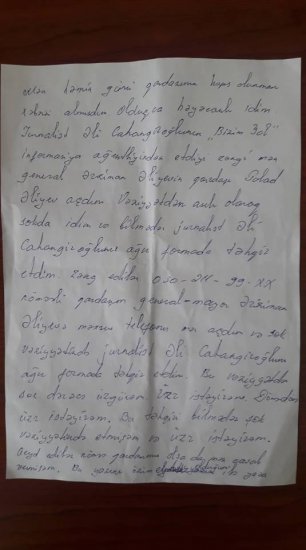 Mən həmin günü qardaşımın həbs olunması
xəbəri almışdım Olduqca həyəcanlı idim.
Jurnalist Əli Cahangiroğlunun „Bizim Yol"
informasiya agentliyindən etdiyi zəngi mən
general Ərziman Əliyevin qardaşı Polad
Əliyev açdım Vəziyyətdən asılı olaraq
şokda idim və bilmədən jurnalist Əli
Cahangiroğlunu ağır formada təhqir
etdim. zəng edilən 050-211-99-XX
nömrəli qardaşım general-mayor Ərziman
Əliyevə məxsus telefonu mən açdım və şok
vəziyyətində jurnalist Əli Cahangiroğlunu
ağır formada təhqir etdim. Bu vəziyyətdən
üzr istəyirəm.
üzr istəyirəm. Bu təhqiri bilmədən şok
vəziyyətində etmişəm və üzr istəyirəm.
Qeyd edilən nömrə qardaşımın olsa da mən qəsəb
Bu yazını